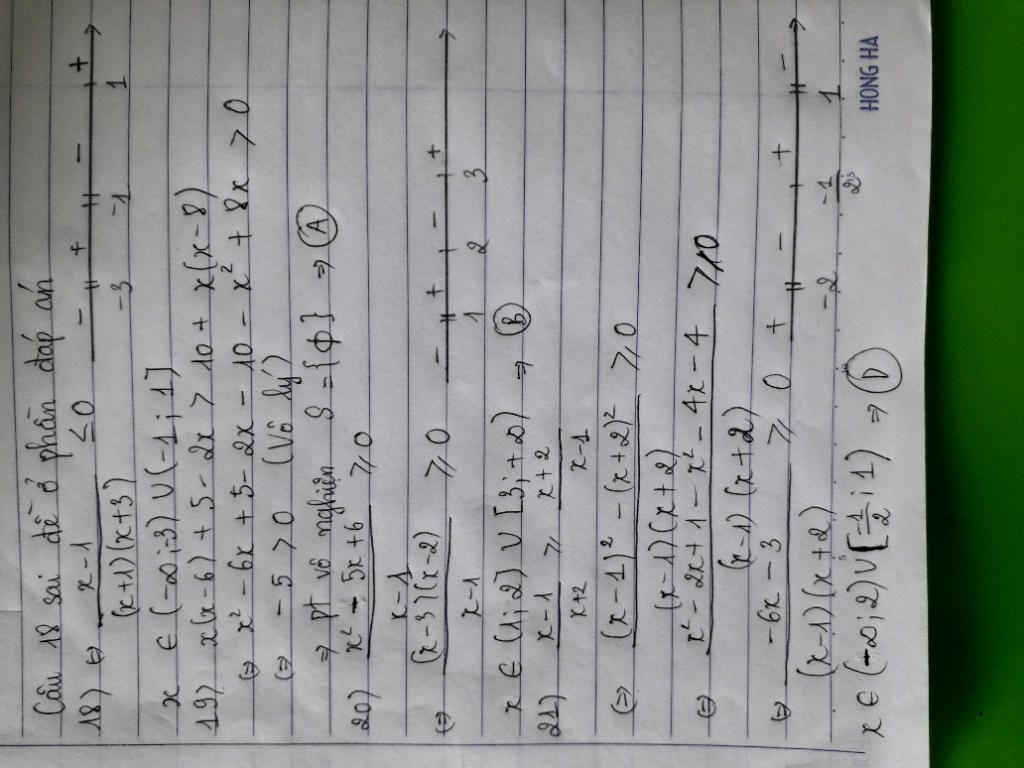 Câu 18 sai đề ở phần đáp án
18) ⇔ x-1 / (x+1)(x+3) ≤ 0 - + - +
-3 -1 1
x ∈ (-∞;3) ∪ (-1;1]
19) x(x-6) + 5 - 2x > 10 + x(x-8)
⇔ x² - 6x + 5 - 2x - 10 - x² + 8x > 0
⇔ -5 > 0 (Vô lý)
⇒ pt vô nghiệm S = {φ} ⇒ A
20) x² - 5x + 6 / x-1 ≥ 0
⇔ (x-3)(x-2) / x-1 ≥ 0 - + - +
1 2 3
x ∈ (1;2) ∪ [3;+∞) ⇒ B
21) x-1 / x+2 ≥ x+2 / x-1
⇔ (x-1)² - (x+2)² / (x-1)(x+2) ≥ 0
⇔ x² - 2x + 1 - x² - 4x - 4 / (x-1)(x+2) ≥ 0
⇔ -6x - 3 / (x-1)(x+2) ≥ 0 + - + -
-2 -1/2 1
x ∈ (-∞;2) ∪ [-1/2;1) ⇒ D
HONG HA